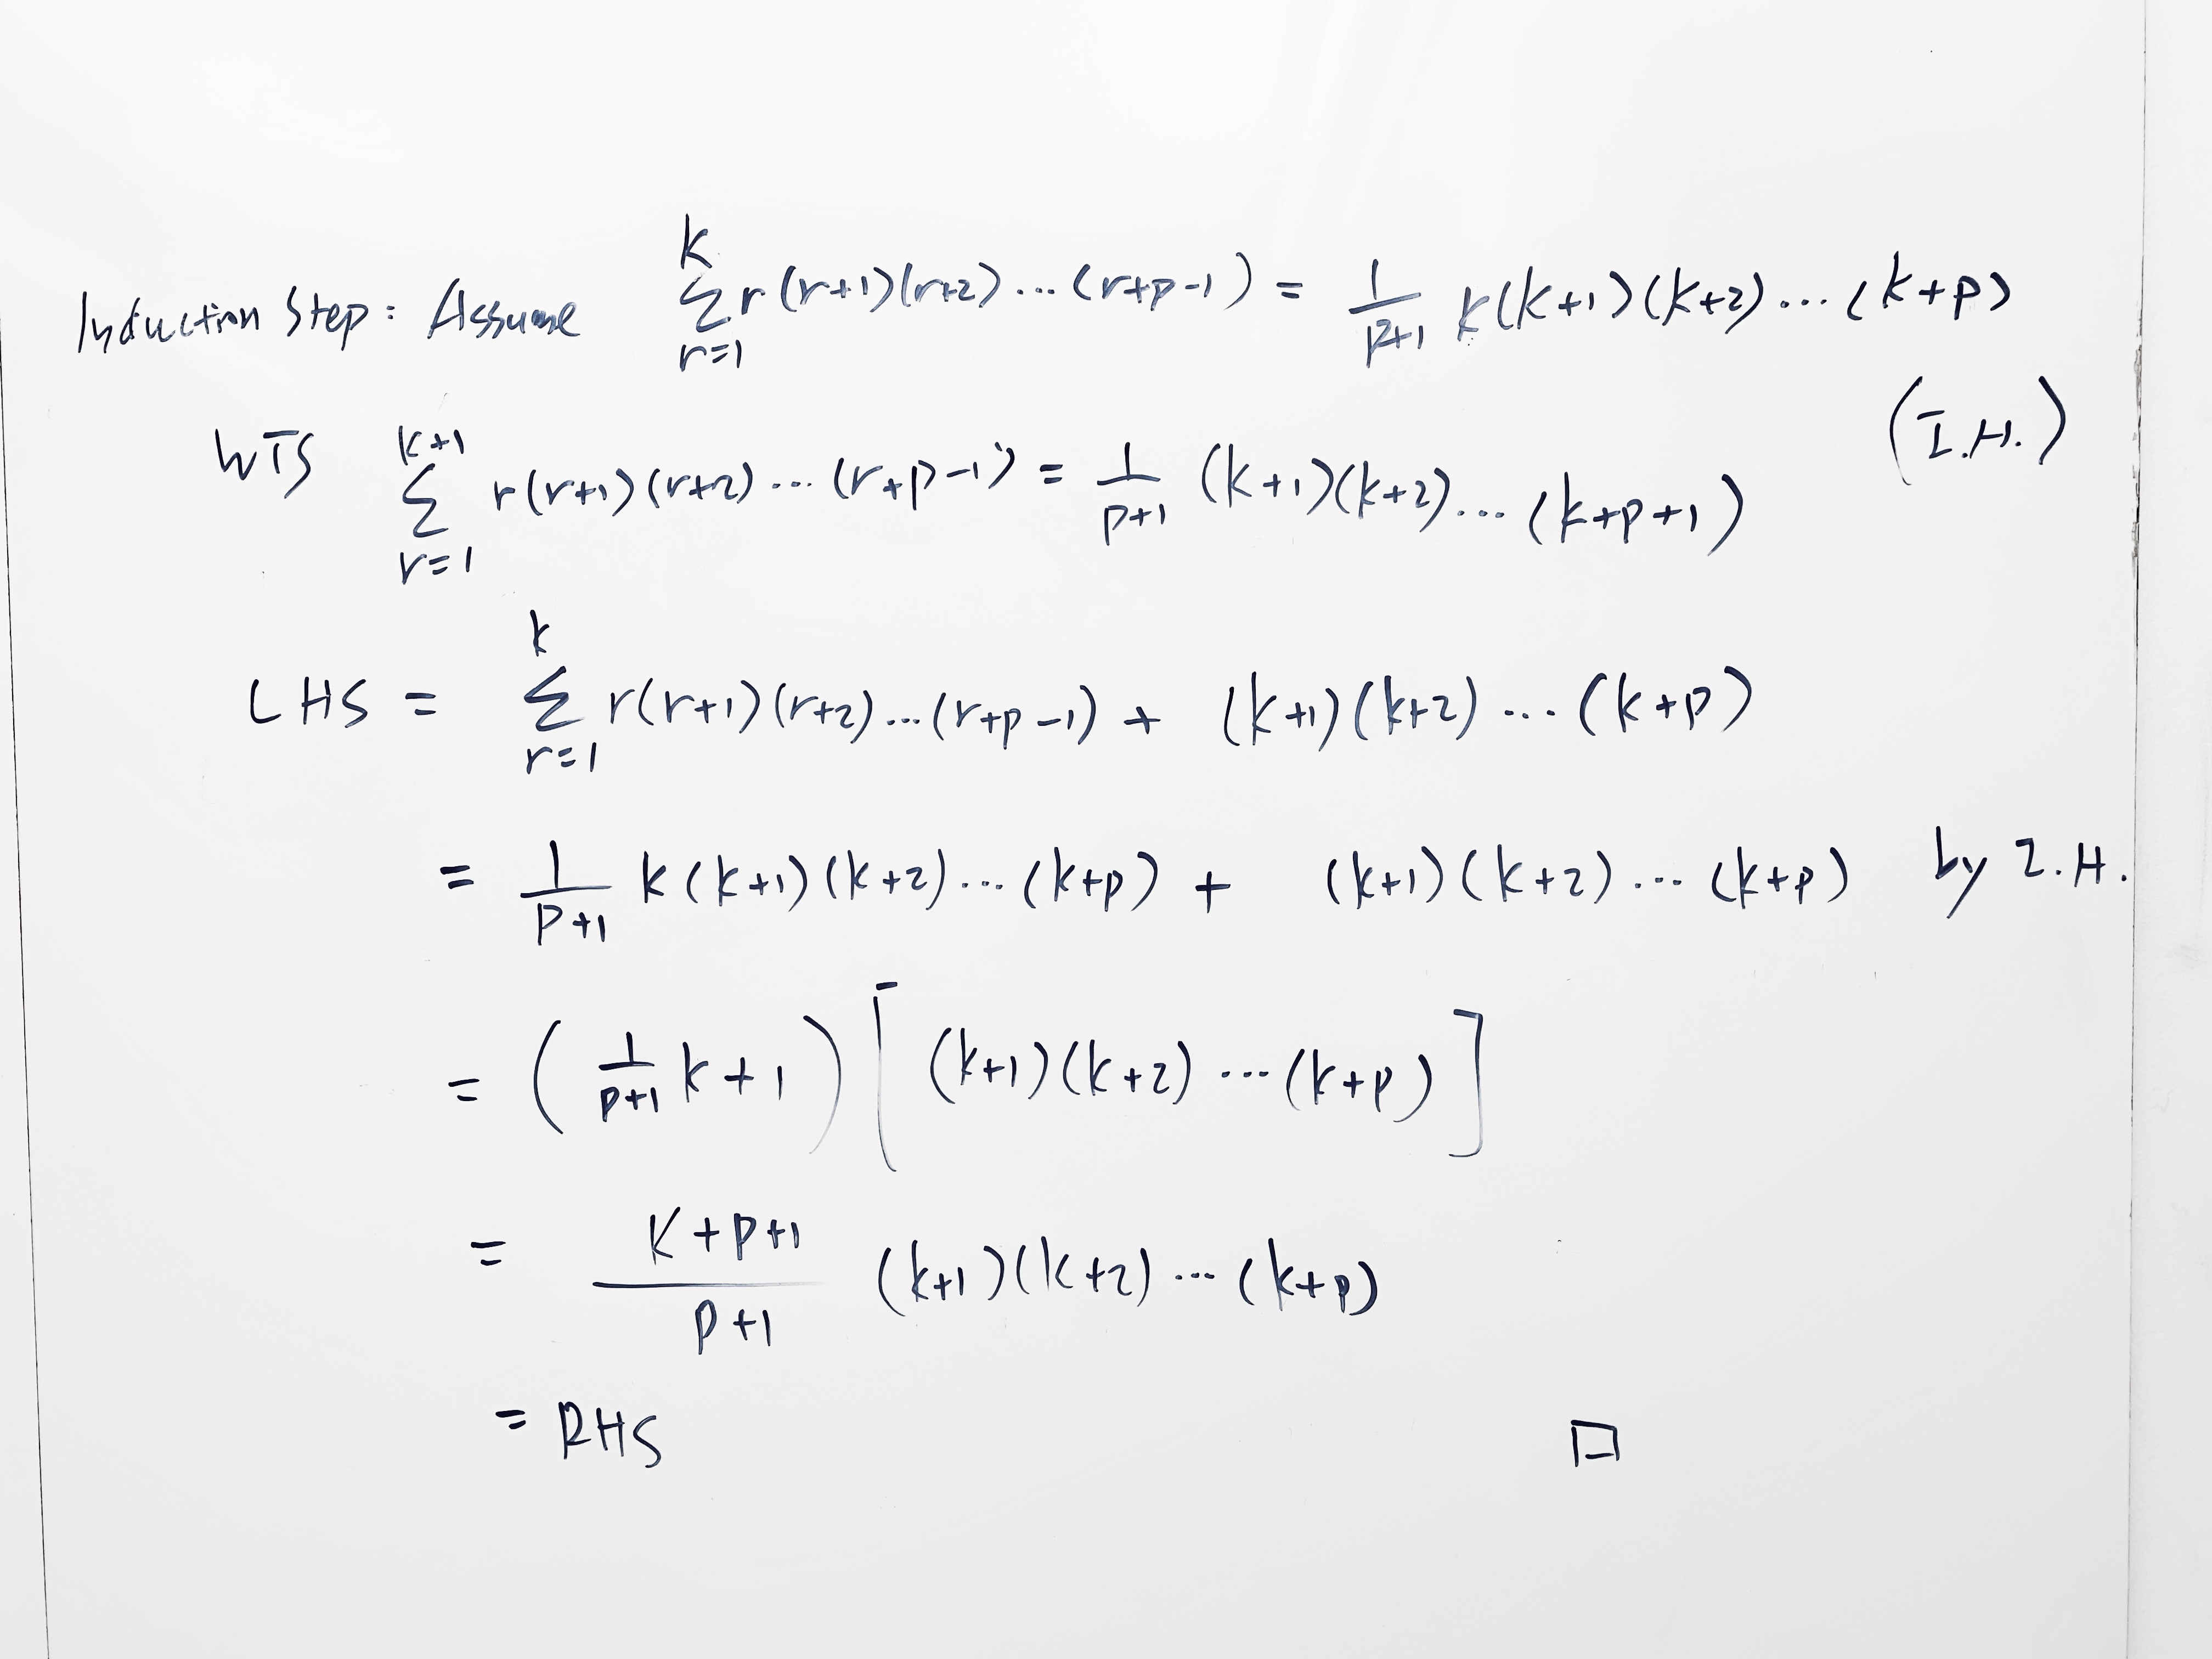 Induction Step: Assume \sum_{r=1}^{k} r(r+1)(r+2)...(r+p-1) = \frac{1}{p+1} k(k+1)(k+2)...(k+p)
(I.H.)
WTS \sum_{r=1}^{k+1} r(r+1)(r+2)...(r+p-1) = \frac{1}{p+1} (k+1)(k+2)...(k+p+1)
LHS = \sum_{r=1}^{k} r(r+1)(r+2)...(r+p-1) + (k+1)(k+2)...(k+p)
= \frac{1}{p+1} k(k+1)(k+2)...(k+p) + (k+1)(k+2)...(k+p) by I.H.
= (\frac{1}{p+1} k+1) [(k+1)(k+2)...(k+p)]
= \frac{k+p+1}{p+1} (k+1)(k+2)...(k+p)
= RHS □